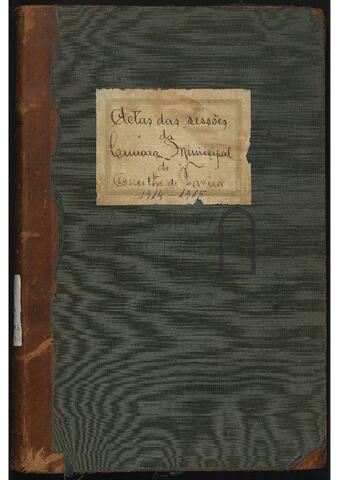 Actas das sessões
da
Camara Municipal
do
Concelho de Tavira
1914-1915